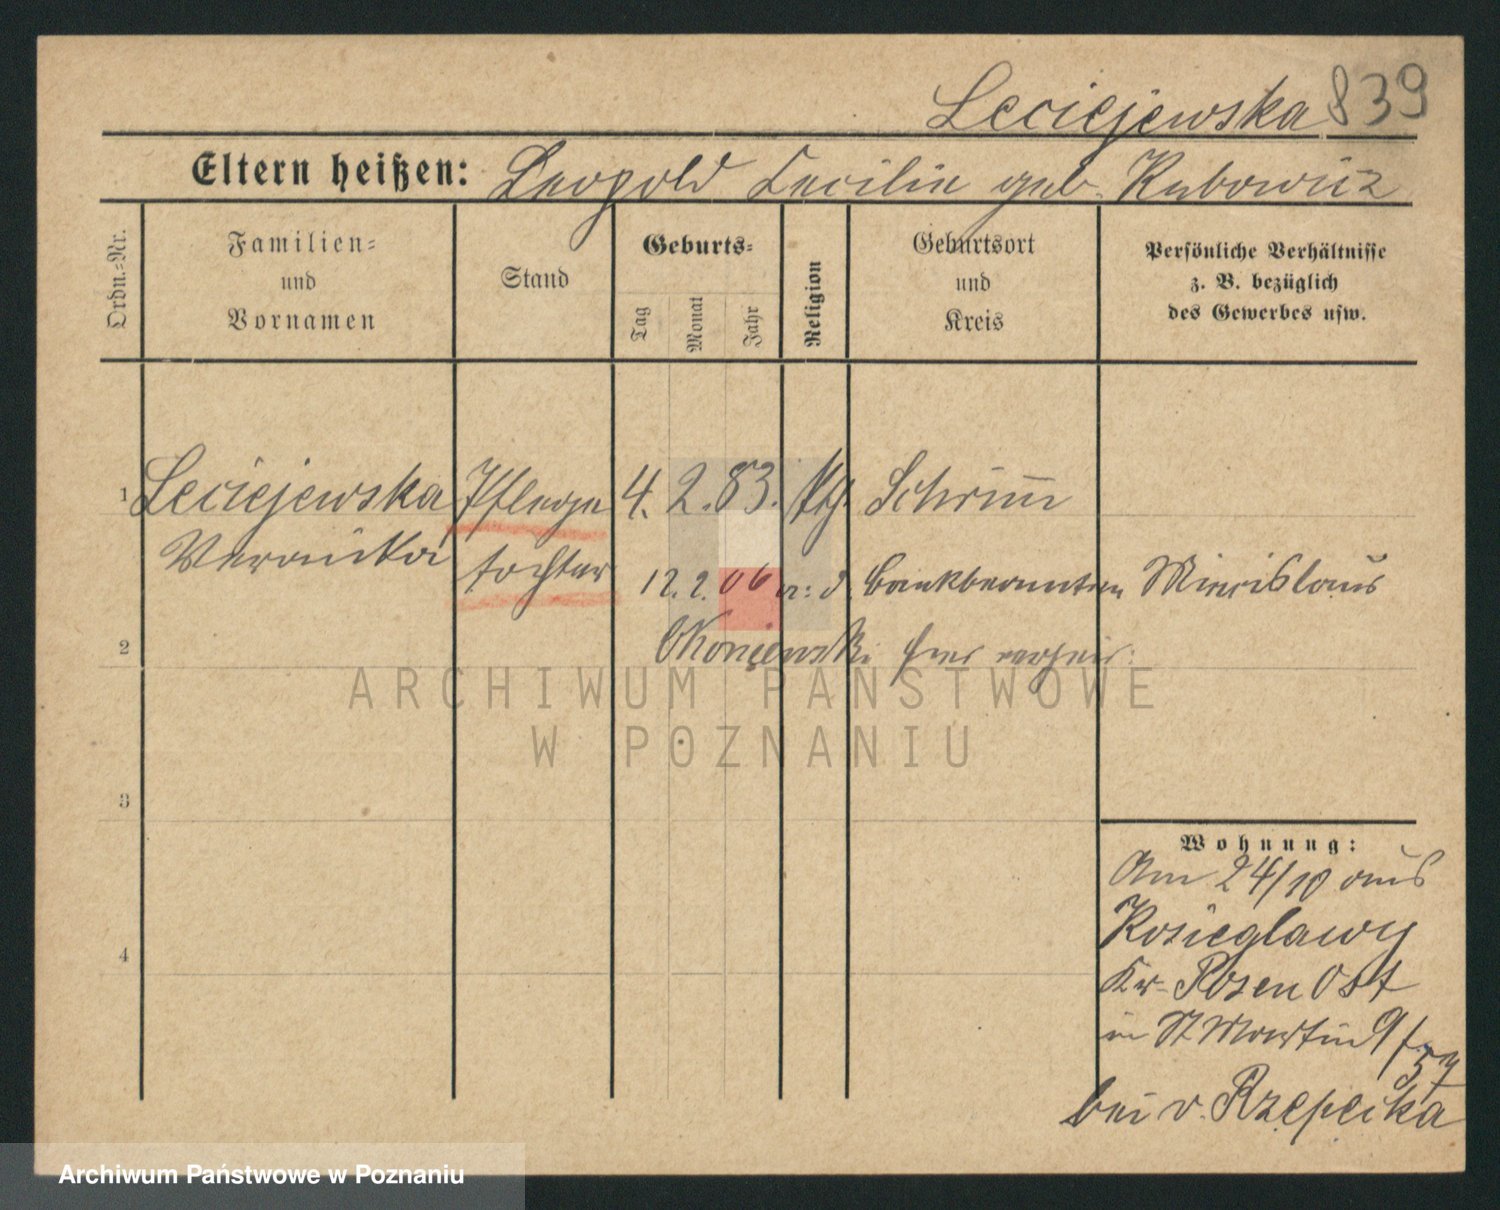 Leciejewska 839
Eltern heißen: Leopold Cecilie geb. Kubowicz
Ordn.-Nr.
Familien-
und
Vornamen
Stand
Geburts-
Tag
Monat
Jahr
Religion
Geburtsort
und
Kreis
Persönliche Verhältnisse
z. B. bezüglich
des Gewerbes usw.
1 Leciejewska Pflege 4. 2. 83. kth. Schrimm
Veronika tochter
12. 2. 06 a: d. Bankbeamten Miecislaus
2 Okoniewski hier verheir.
ARCHIWUM PAŃSTWOWE
W POZNANIU
3
Wohnung:
Am 24/10 aus
Kozieglawy
4
Kr. Posen Ost
in St Martin 9/
57
bei v. Rzepecka
Archiwum Państwowe w Poznaniu